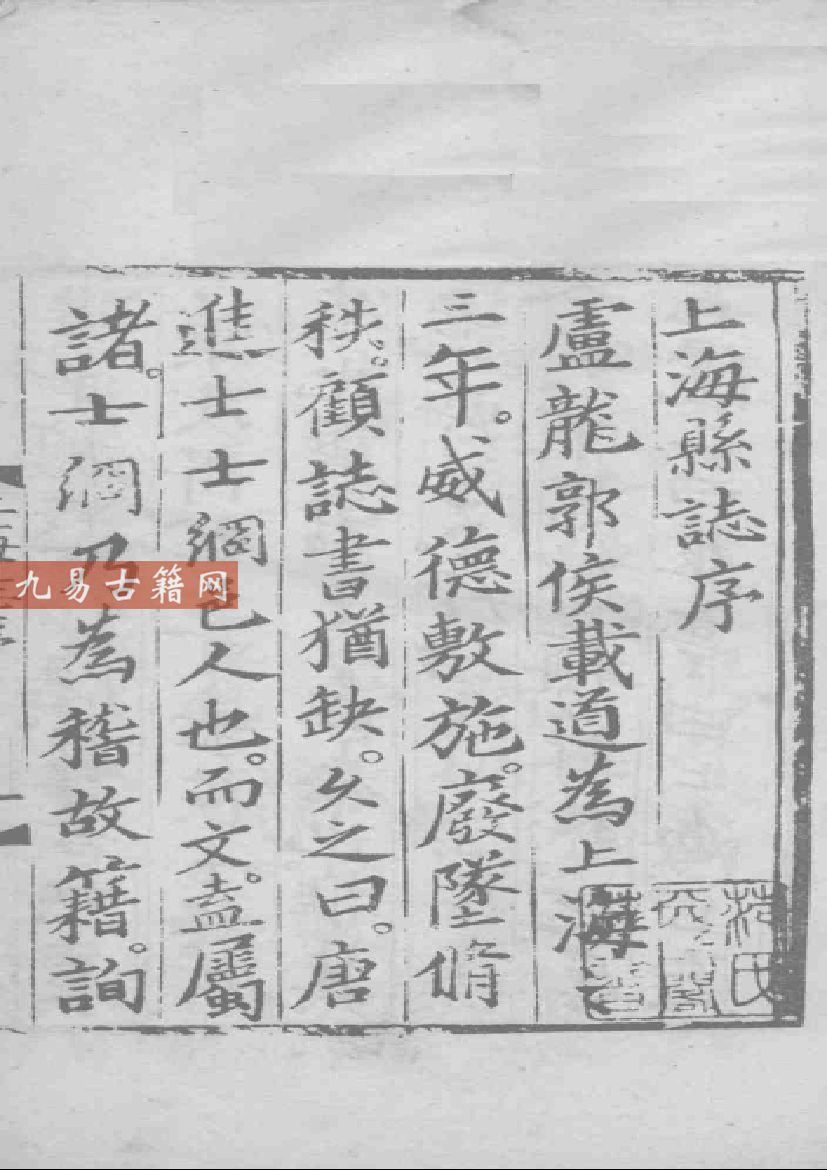 上海縣誌序
盧龍郭侯載道為上海
三年。威德敷施。廢墜脩
秩。顧誌書猶缺。久之曰。唐
進士士綱邑人也。而文。盍屬
諸。士綱乃為稽故籍。詢
九易古籍网